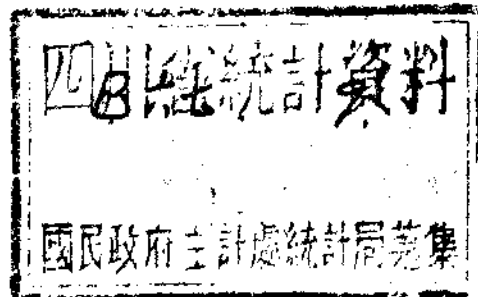 四川統計資料
國民政府主計處統計局蒐集